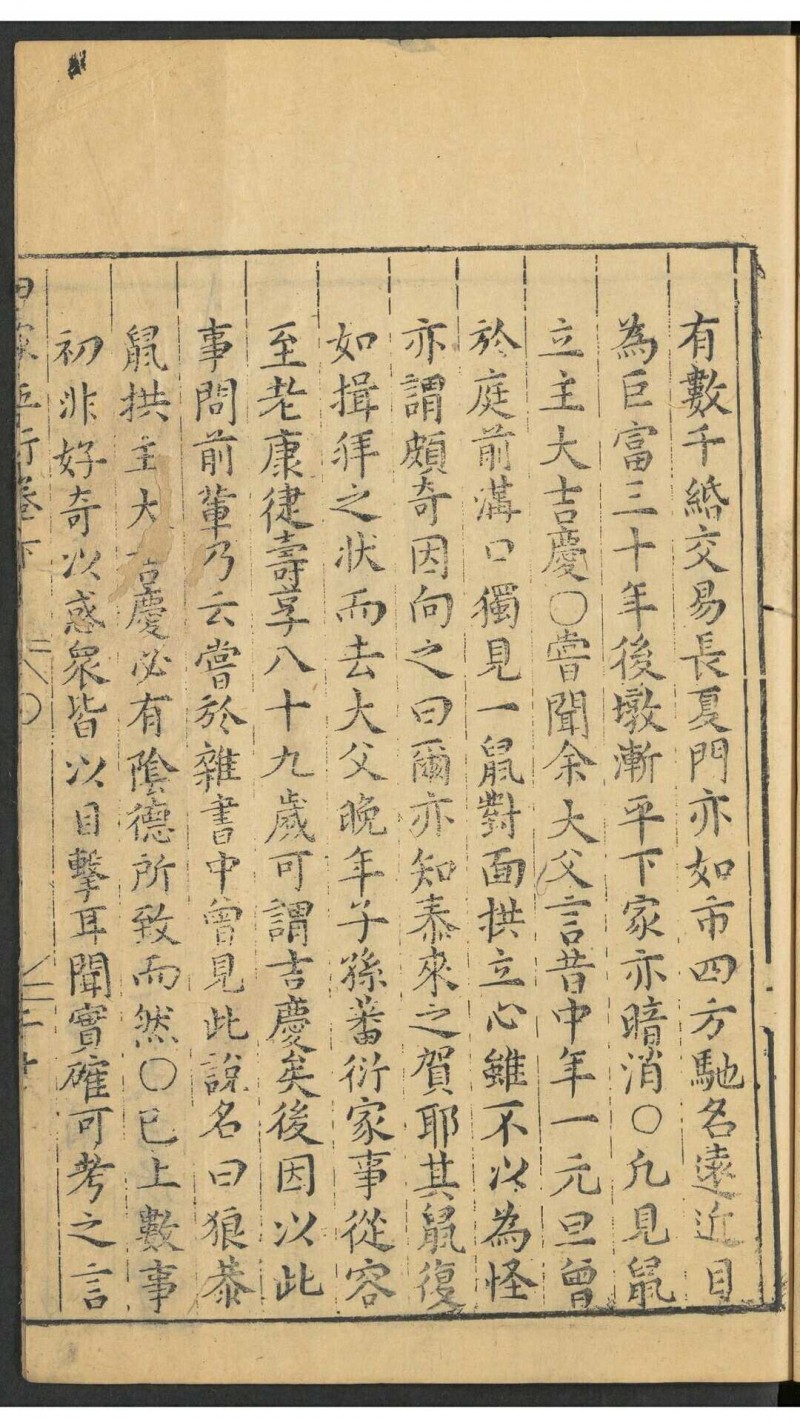 有數千緡交易長夏門亦如市四方馳名遠近目
為巨富三十年後墩漸平下家亦暗消〇凡見鼠
立主大吉慶〇嘗聞余大父言昔中年一元旦曾
於庭前溝口獨見一鼠對面拱立心雖不以為怪
亦謂頗奇因向之曰爾亦知泰來之賀耶其鼠復
如揖拜之状而去大父晚年子孫蕃衍家事從容
至老康健壽享八十九歲可謂吉慶矣後因以此
事問前輩乃云嘗於雜書中曾見此說名曰狼恭
鼠拱主大吉慶必有陰德所致而然〇已上數事
初非好奇以惑衆皆以目擊耳聞實確可考之言
田家五行卷下